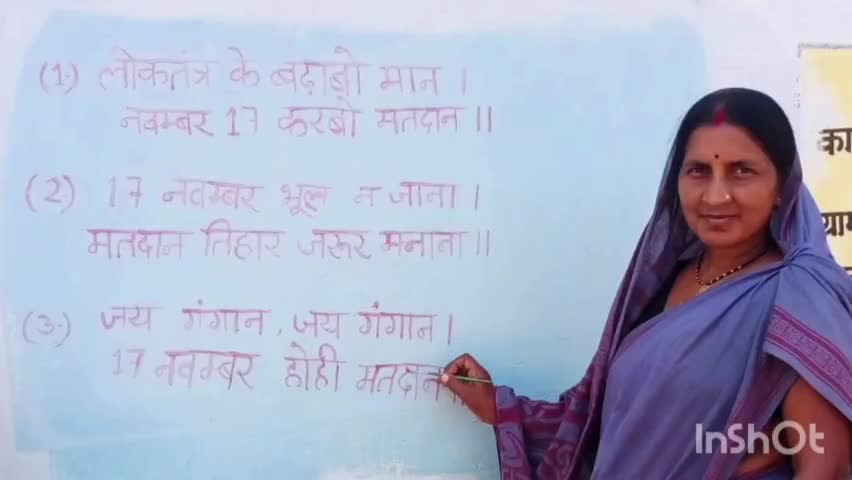 (1.) लोकतंत्र के बढ़ाबो मान ।
नवम्बर 17 करबो मतदान ॥
(2.) 17 नवम्बर भूल न जाना ।
मतदान तिहार जरूर मनाना ॥
(3.) जय गंगान, जय गंगान ।
17 नवम्बर होही मतदान
का
ग्राम
InShOt